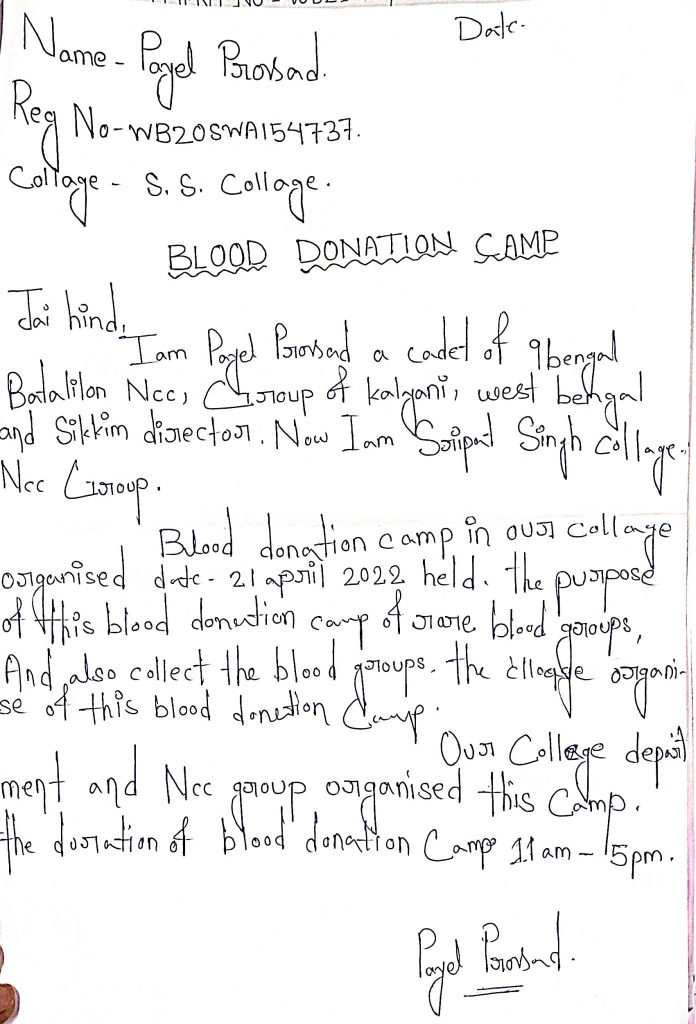 Date-
Name - Payel Prorsad.
Reg No-WB20SWA154737.
Collage - S. S. Collage.
BLOOD DONATION CAMP
Jai hind,
Iam Payel Prorsad a cadet of 9bengal
Batalilon Ncc, Group of kalyani, west bengal
and Sikkim director. Now Iam Sripat Singh collage.
Ncc Group.
Blood donation camp in our collage
organised date- 21 april 2022 held. the purpose
of this blood donation camp of rare blood groups,
And also collect the blood groups. the organi-
se of this blood donetion Camp.
Our College depart
ment and Ncc group organised this Camp.
the duration of blood donation Camp 11am - 5pm.
Payel Prorsad.